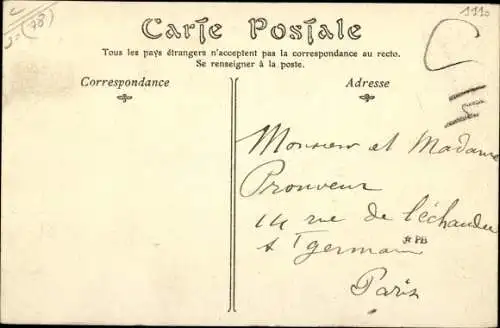 (78)
1110
Carte Postale
Tous les pays étrangers n'acceptent pas la correspondance au recto.
Se renseigner à la poste.
Correspondance
Adresse
Monsieur et Madame
Prouveur
14 rue de l'échaudé
St germain
PB
Paris